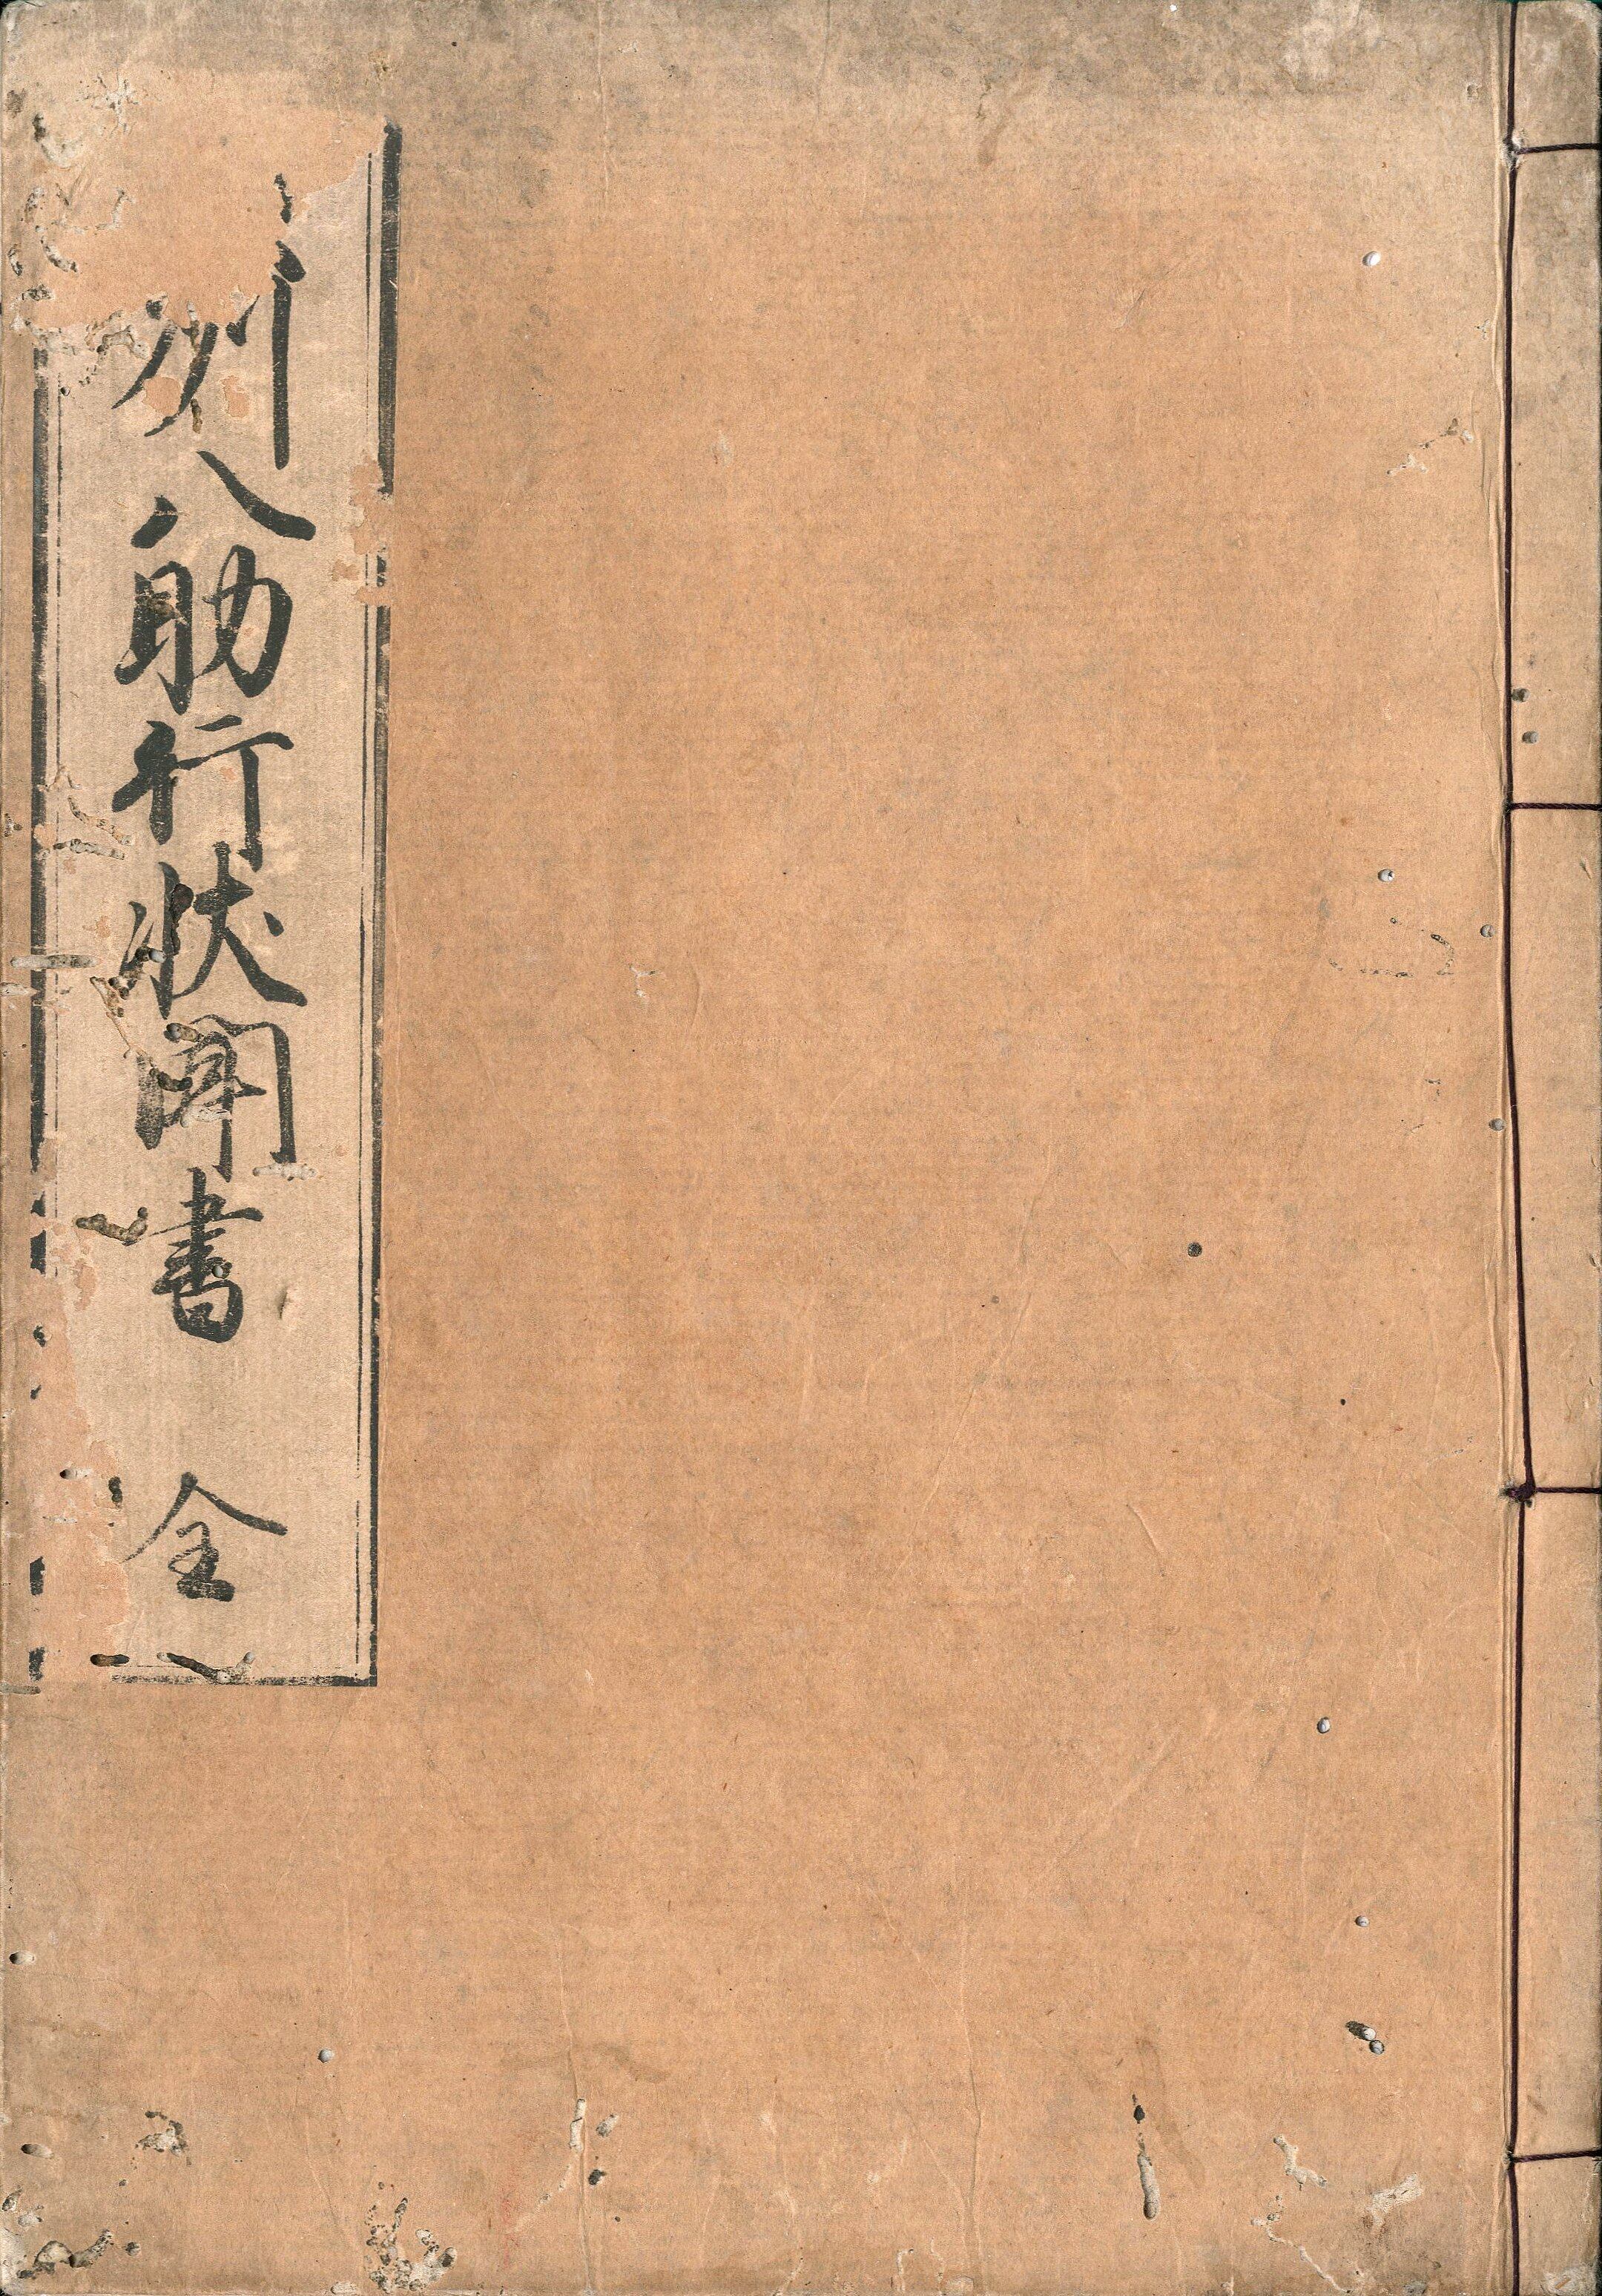 八助行状聞書 全